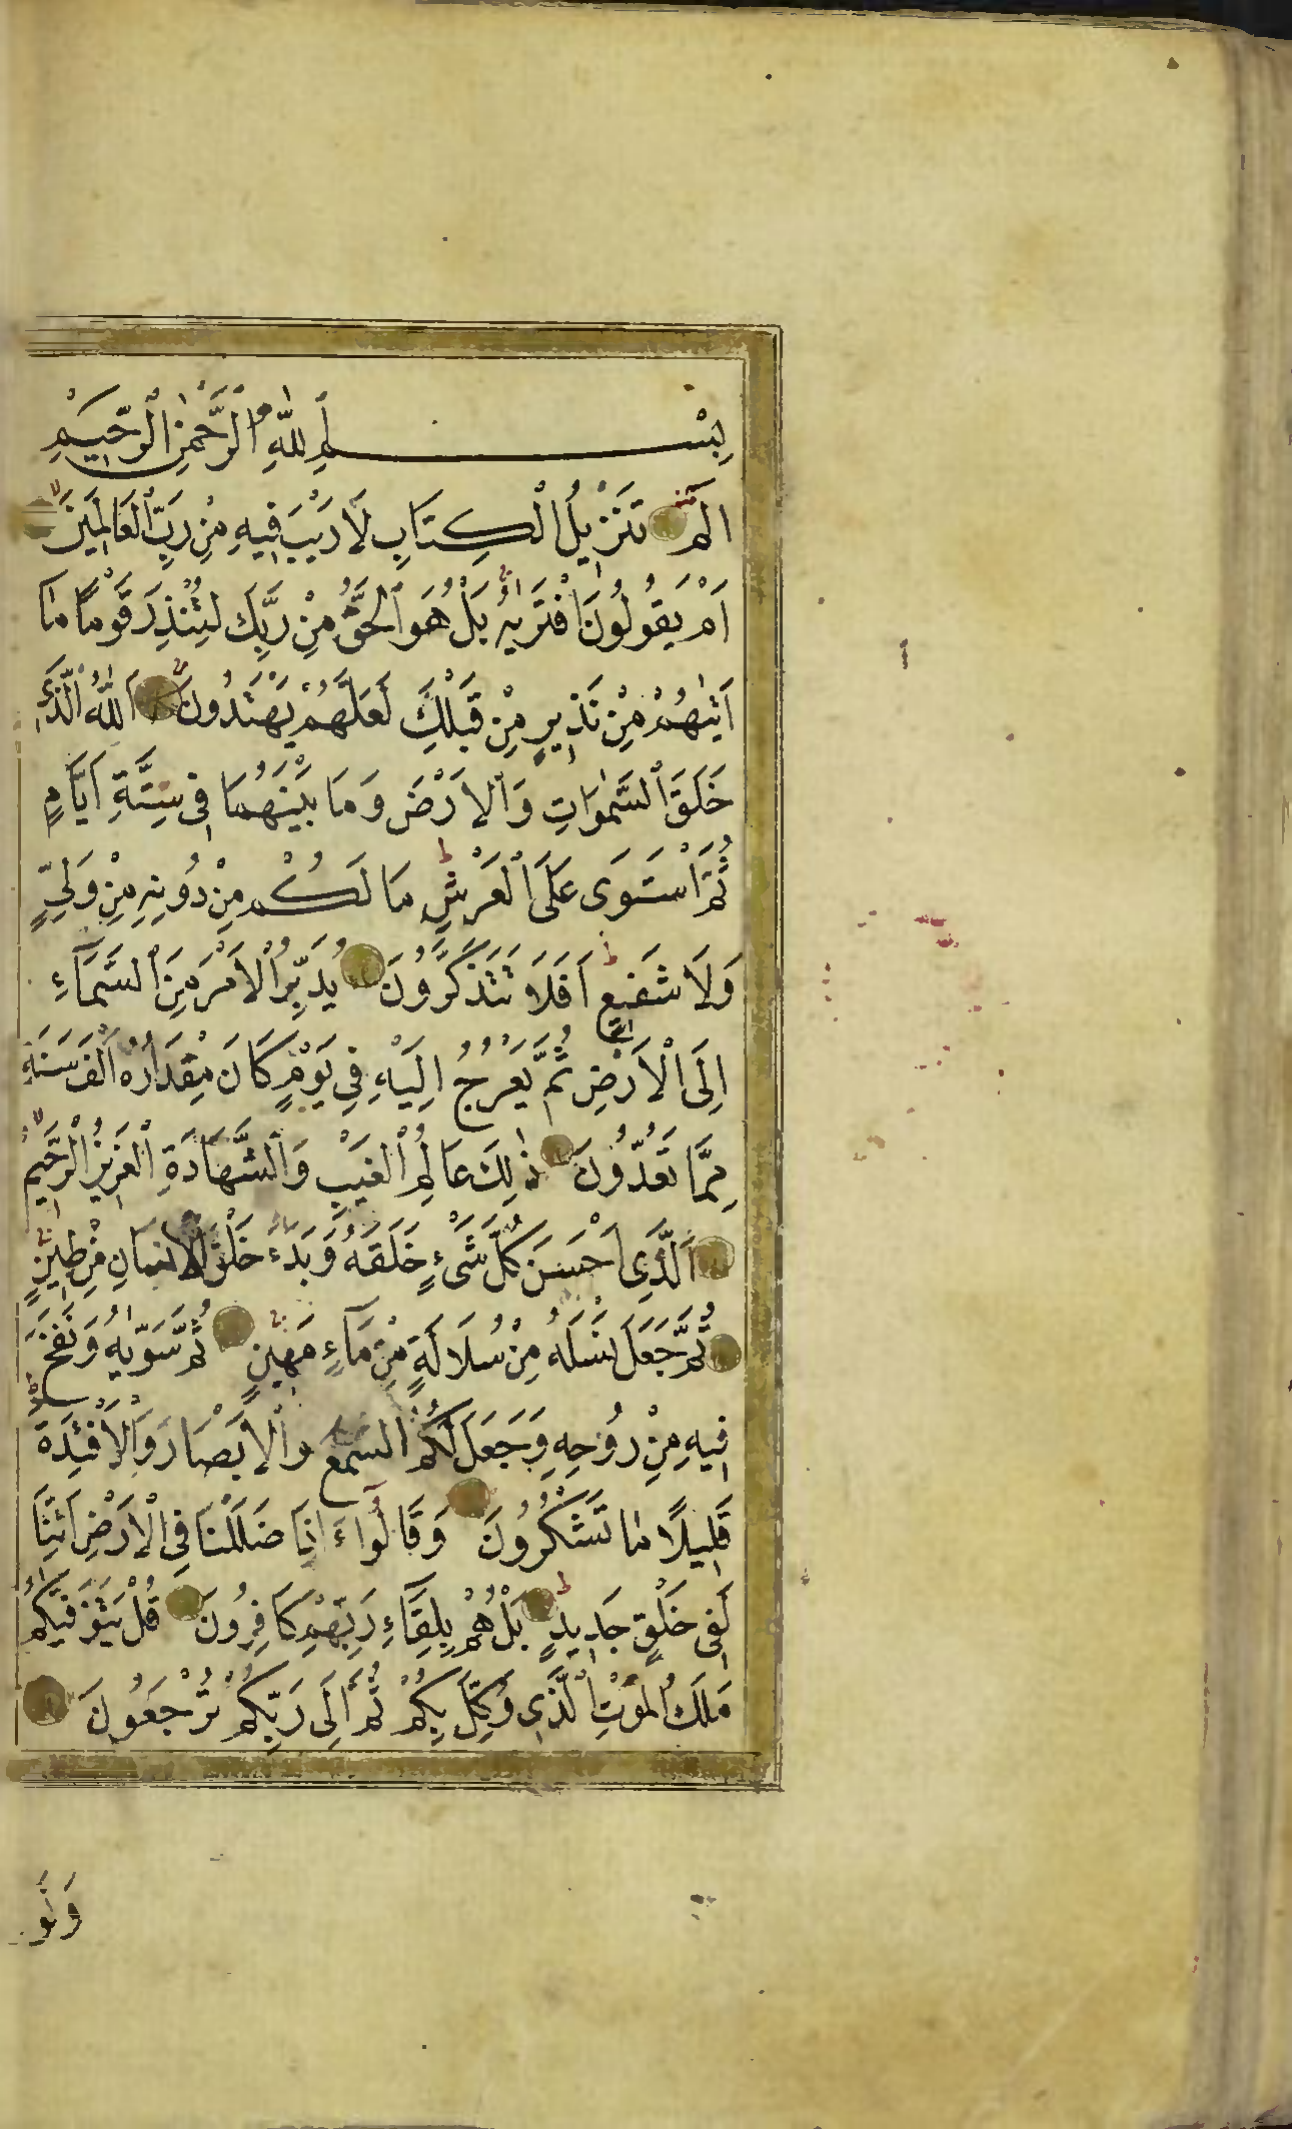 بِسْمِ اللّٰهِ الرَّحْمٰنِ الرَّحِيمِ
الٓمٓ تَنْزِيلُ الْكِتَابِ لَا رَيْبَ فِيهِ مِنْ رَبِّ الْعَالَمِينَ
اَمْ يَقُولُونَ افْتَرٰيهُ بَلْ هُوَ الْحَقُّ مِنْ رَبِّكَ لِتُنْذِرَ قَوْمًا مَا
اَتٰيهُمْ مِنْ نَذِيرٍ مِنْ قَبْلِكَ لَعَلَّهُمْ يَهْتَدُونَ اَللّٰهُ الَّذِي
خَلَقَ السَّمٰوَاتِ وَالْاَرْضَ وَمَا بَيْنَهُمَا فِي سِتَّةِ اَيَّامٍ
ثُمَّ اسْتَوَى عَلَى الْعَرْشِ مَا لَكُمْ مِنْ دُونِهِ مِنْ وَلِيٍّ
وَلَا شَفِيعٍ اَفَلَا تَتَذَكَّرُونَ يُدَبِّرُ الْاَمْرَ مِنَ السَّمَاءِ
اِلَى الْاَرْضِ ثُمَّ يَعْرُجُ اِلَيْهِ فِي يَوْمٍ كَانَ مِقْدَارُهُ اَلْفَ سَنَةٍ
مِمَّا تَعُدُّونَ ذٰلِكَ عَالِمُ الْغَيْبِ وَالشَّهَادَةِ الْعَزِيزُ الرَّحِيمُ
اَلَّذِي اَحْسَنَ كُلَّ شَيْءٍ خَلَقَهُ وَبَدَءَ خَلْقَ الْاِنْسَانِ مِنْ طِينٍ
ثُمَّ جَعَلَ نَسْلَهُ مِنْ سُلَالَةٍ مِنْ مَاءٍ مَهِينٍ ثُمَّ سَوّٰيهُ وَنَفَخَ
فِيهِ مِنْ رُوحِهِ وَجَعَلَ لَكُمُ السَّمْعَ وَالْاَبْصَارَ وَالْاَفْئِدَةَ
قَلِيلًا مَا تَشْكُرُونَ وَقَالُوا ءَاِذَا ضَلَلْنَا فِي الْاَرْضِ اَئِنَّا
لَفِي خَلْقٍ جَدِيدٍ بَلْ هُمْ بِلِقَاءِ رَبِّهِمْ كَافِرُونَ قُلْ يَتَوَفّٰيكُمْ
مَلَكُ الْمَوْتِ الَّذِي وُكِّلَ بِكُمْ ثُمَّ اِلَى رَبِّكُمْ تُرْجَعُونَ
وَلَو